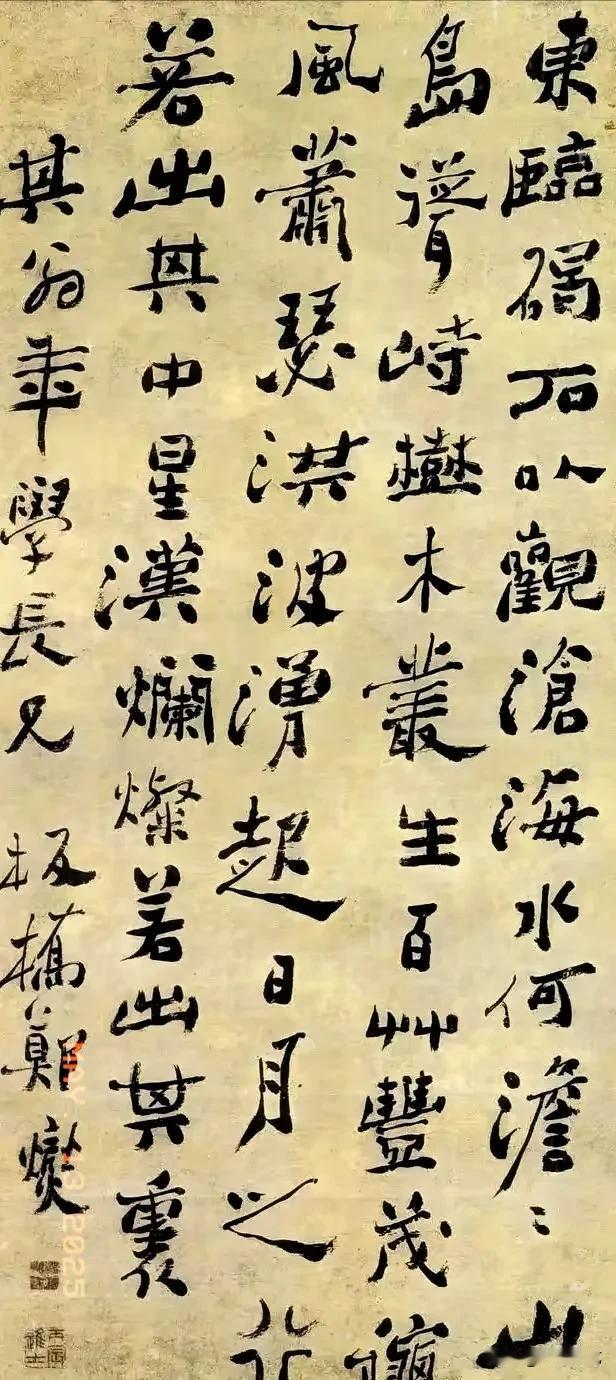 東臨碣石以觀滄海水何澹〻山
島聳峙樹木叢生百艸豐茂龝
風蕭瑟洪波湧起日月之行
若出其中星漢爛燦若出其裏
其翁年學長兄 板橋鄭燮
丙辰進士